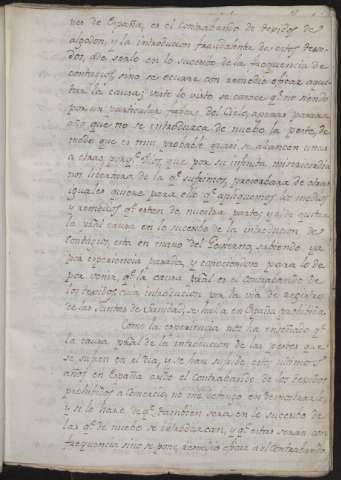 vès de España, es el contrabando de texidos de
algodon, u la introducion fraudulenta de estos texi-
dos, que sealo en lo sucesto la frequencia de
contagios, sino se ocurre con remedio eficaz a qui-
tar la causa; visto lo visto se conoce qᵉ no siendo
por un particular favor del Cielo, apenas pasara
año que no se introduzca de nuebo la peste, de
modo que es mui probable quasi se alancen unas
a otras, porqᵉ Dˢ, que por su infinita misericordia
nos libertara de la qᵉ sufrimos, preservara de otras
iguales quiere para ello qᵉ apliquemos los medios
y remedios qᵉ esten de nuestra parte; y el de quitar
la pral causa en lo sucesto de la introducion de
contagios, esta en mano del Govierno, sabiendo ya
por experiencia pasada, y conociendose para lo de
por venir, qᵉ la causa pral es el contrabando de
los texidos cuia introducion por la via de registro
de las Juntas de Sanidad, se halla en España prohivida.
Como la experiencia nos ha enseñado qᵉ
la causa pral de la introducion de las pestes que
se sufren en el dia, y se han sufrido estos ultimos
años en España ha sido el contrabando de los texidos
prohividos a comercio, no me detengo en demonstrarla;
y si lo haré de qᵉ tambien sera en lo sucesto de
las qᵉ de nuebo se introduzcan, y qᵉ estas seran con
frequencia sino se pone remedio eficaz a el contrabando,